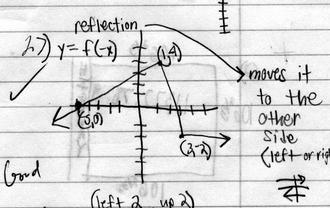 reflection
27) y=f(-x)
(1,4)
moves it
to the
other
side
(left or righ
(3,-2)
Good
(left 2, up 2)